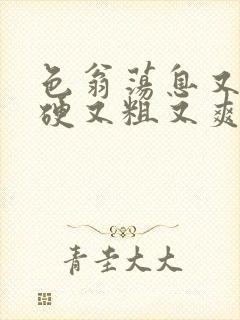 色翁荡息又
硬又粗又爽
青圭大大